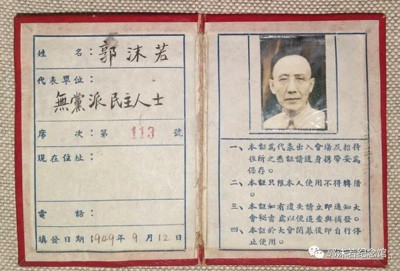 姓名：郭沫若
代表單位：
無黨派民主人士
席次：第 113 號
現在住址：
電話：
填發日期：1949年9月12日
一、本証為代表出入會場及招待
住所之憑証請隨身携帶妥為
保存。
二、本証只限本人使用不得轉借
三、本証如有遺失請立即通知大
會秘書處以便追查與補發。
四、本証於大會閉幕後即自行停
止使用。
郭沫若纪念馆